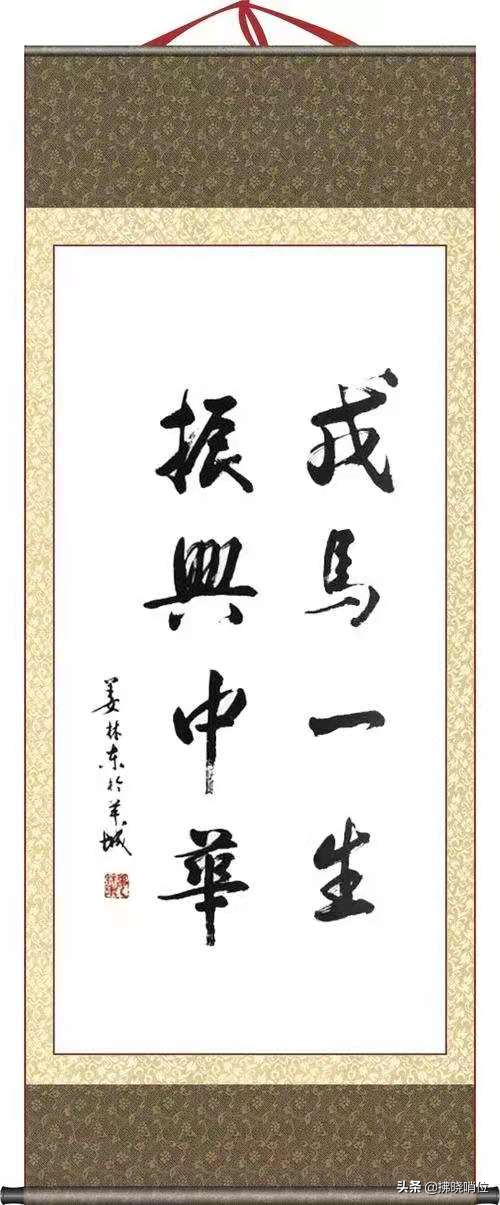 戎馬一生
振興中華
姜林东於羊城
头条@拂晓哨位